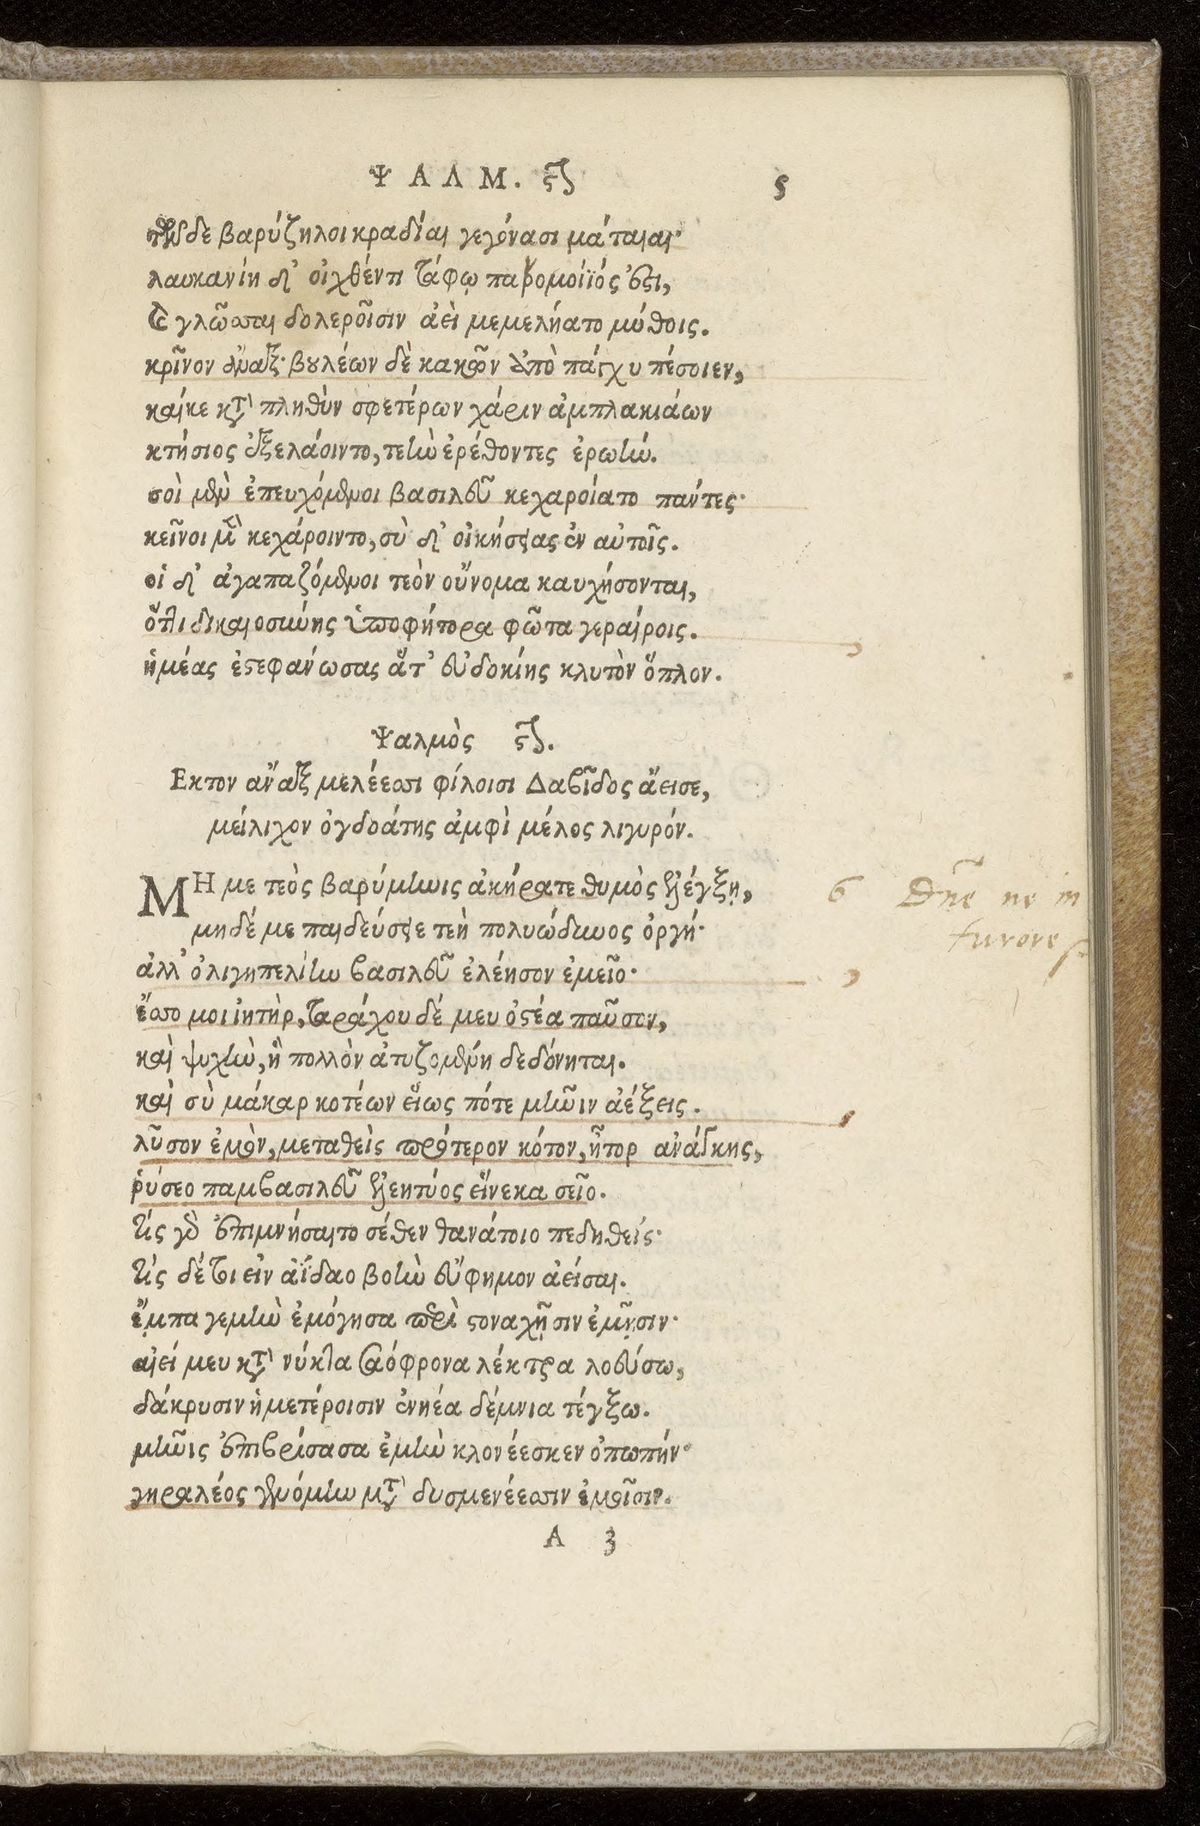 ΨΑΛΜ. ϛ 5
τῶν δὲ βαρύζηλοι κραδίαι γεγόνασι μάταιαι·
λαυκανίη δ' οἰχθέντι τάφῳ παρομοίϊός ἐστι,
καὶ γλῶσσαι δολεροῖσιν ἀεὶ μεμελήατο μύθοις.
κρῖνον ἄναξ· βουλέων δὲ κακῶν ἀπὸ πάγχυ πέσοιεν,
καίκε κατὰ πληθὺν σφετέρων χάριν ἀμπλακιάων
κτήσιος ἐξελάσιντο, τεὴν ἐρέθοντες ἐρωήν.
σοὶ μὲν ἐπευχόμενοι βασιλεῦ κεχαροίατο πάντες·
κεῖνοι μὲν κεχάροιντο, σὺ δ' οἰκήσειας ἐν αὐτοῖς.
οἱ δ' ἀγαπαζόμενοι τεὸν οὔνομα καυχήσονται,
ὅττι δικαιοσύνης ὑποφήτορα φῶτα γεραίροις.
ἡμέας ἐστεφάνωσας ἅτ' εὐδοκίης κλυτὸν ὅπλον.
Ψαλμὸς ϛ.
Εκτον ἄναξ μελέεσσι φίλοισι Δαβῖδος ἄεισε,
μείλιχον ὀγδοάτης ἀμφὶ μέλος λιγυρόν.
ΜΗ με τεὸς βαρύμηνις ἀκήρατε θυμὸς ἐλέγξῃ,
μηδέ με παιδεύσειε τεὴ πολυώδυνος ὀργή·
ἀλλ' ὀλιγηπελίην βασιλεῦ ἐλέησον ἐμεῖο·
ἔσσο μοι ἰητὴρ, ταράχου δέ μευ ὀστέα παῦσον,
καὶ ψυχὴν, ἣ πολλὸν ἀτυζομένη δεδόνηται.
καὶ σὺ μάκαρ κοτέων εἵως πότε μῆνιν ἀέξεις.
λῦσον ἐμὸν, μεταθεὶς πρότερον κότον, ἦτορ ἀνάγκης,
ῥύσεο παμβασιλεῦ ἐλεητύος εἵνεκα σεῖο.
τίς γὰρ ἐπιμνήσαιτο σέθεν θανάτοιο πεδηθείς·
τίς δέ τοι εἰν ἀΐδαο βοὴν εὔφημον ἀείσαι.
ἔμπα γεμὴν ἐμόγησα περὶ στοναχῇσιν ἐμῇσιν·
αἰεί μευ κατὰ νύκτα σαόφρονα λέκτρα λοεύσω,
δάκρυσιν ἡμετέροισιν ἐνηέα δέμνια τέγξω.
μῆνις ἐπιβρίσασα ἐμὴν κλονέεσκεν ὀπωπήν·
γηραλέος γενόμην μετὰ δυσμενέεσσιν ἐμοῖσιν.
A 3
6 Dñe ne in
furore